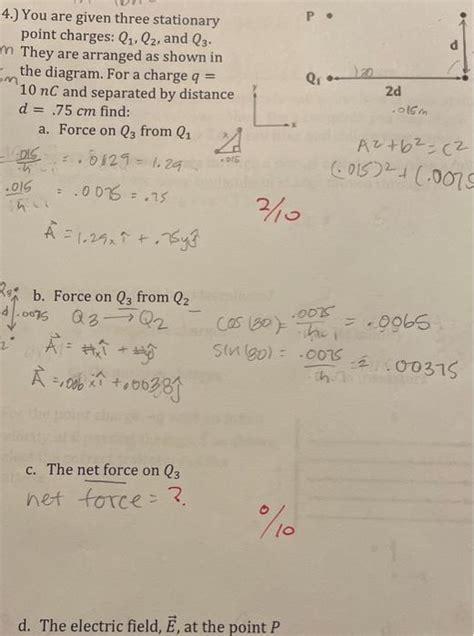 4.) You are given three stationary
point charges: Q₁, Q₂, and Q₃.
They are arranged as shown in
the diagram. For a charge q =
10 nC and separated by distance
d = .75 cm find:
P
d
Q₁
30
2d
.015m
y
x
a. Force on Q₃ from Q₁
.015
A² + b² = c²
(.015)² + (.0075
.015 = .0129 = 1.29
.015 = .0075 = .75
A⃗ = 1.29x î + .75y ĵ
2/10
b. Force on Q₃ from Q₂
d .0075
Q3 → Q2
cos(30) = .0075 = .0065
A⃗ =
sin(30) = .0075 = .00375
A⃗ = .006x î + .0038 ĵ
c. The net force on Q₃
net force = ?
0/10
d. The electric field, E⃗, at the point P